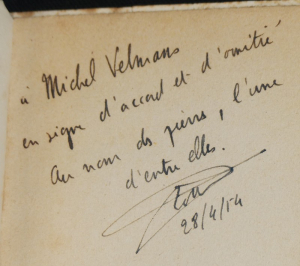 à Michel Velmans
en signe d'accord et d'amitié
Au nom des pierres, l'une
d'entre elles.
28/4/54